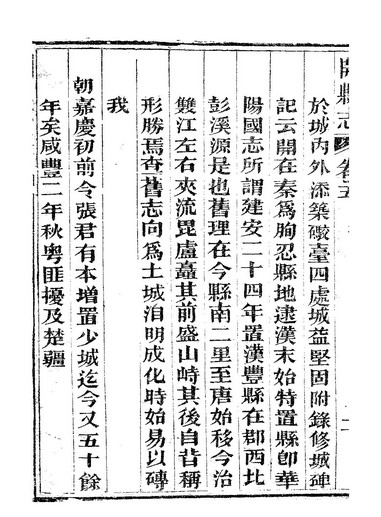 開縣志 卷五
於城內外添築礮臺四處城益堅固附錄修城碑
記云開在秦爲朐忍縣地逮漢末始特置縣卽華
陽國志所謂建安二十四年置漢豐縣在郡西北
彭溪源是也舊理在今縣南二里至唐始移今治
雙江左右夾流毘盧矗其前盛山峙其後自昔稱
形勝焉查舊志向爲土城洎明成化時始易以磚
我
朝嘉慶初前令張君有本增置少城迄今又五十餘
年矣咸豐二年秋粵匪擾及楚疆